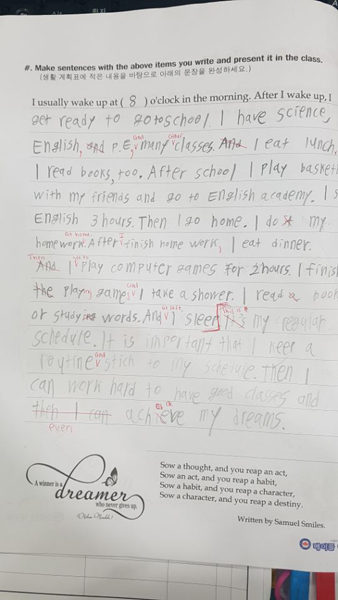 #. Make sentences with the above items you write and present it in the class.
(생활 계획표에 적은 내용을 바탕으로 아래의 문장을 완성하세요.)
I usually wake up at ( 8 ) o'clock in the morning. After I wake up, I
get ready to go to school. I have science,
English, and P.E, and many other classes. And I eat lunch,
I read books, too. After school I play basket
with my friends and go to English academy. I s
English 3 hours. Then I go home. I do my
homework. After I finish home work, I eat dinner.
Then And I play computer games for 2 hours. I finish
the play game, I take a shower. I read a book
or study words. And I sleep my regular
schedule. It is important that I keep a
routine and stick to my schedule. Then I
can work hard to have good classes and
then I can achieve my dreams.
even
A winner is a
dreamer
who never gives up.
Sow a thought, and you reap an act,
Sow an act, and you reap a habit,
Sow a habit, and you reap a character,
Sow a character, and you reap a destiny.
Written by Samuel Smiles.